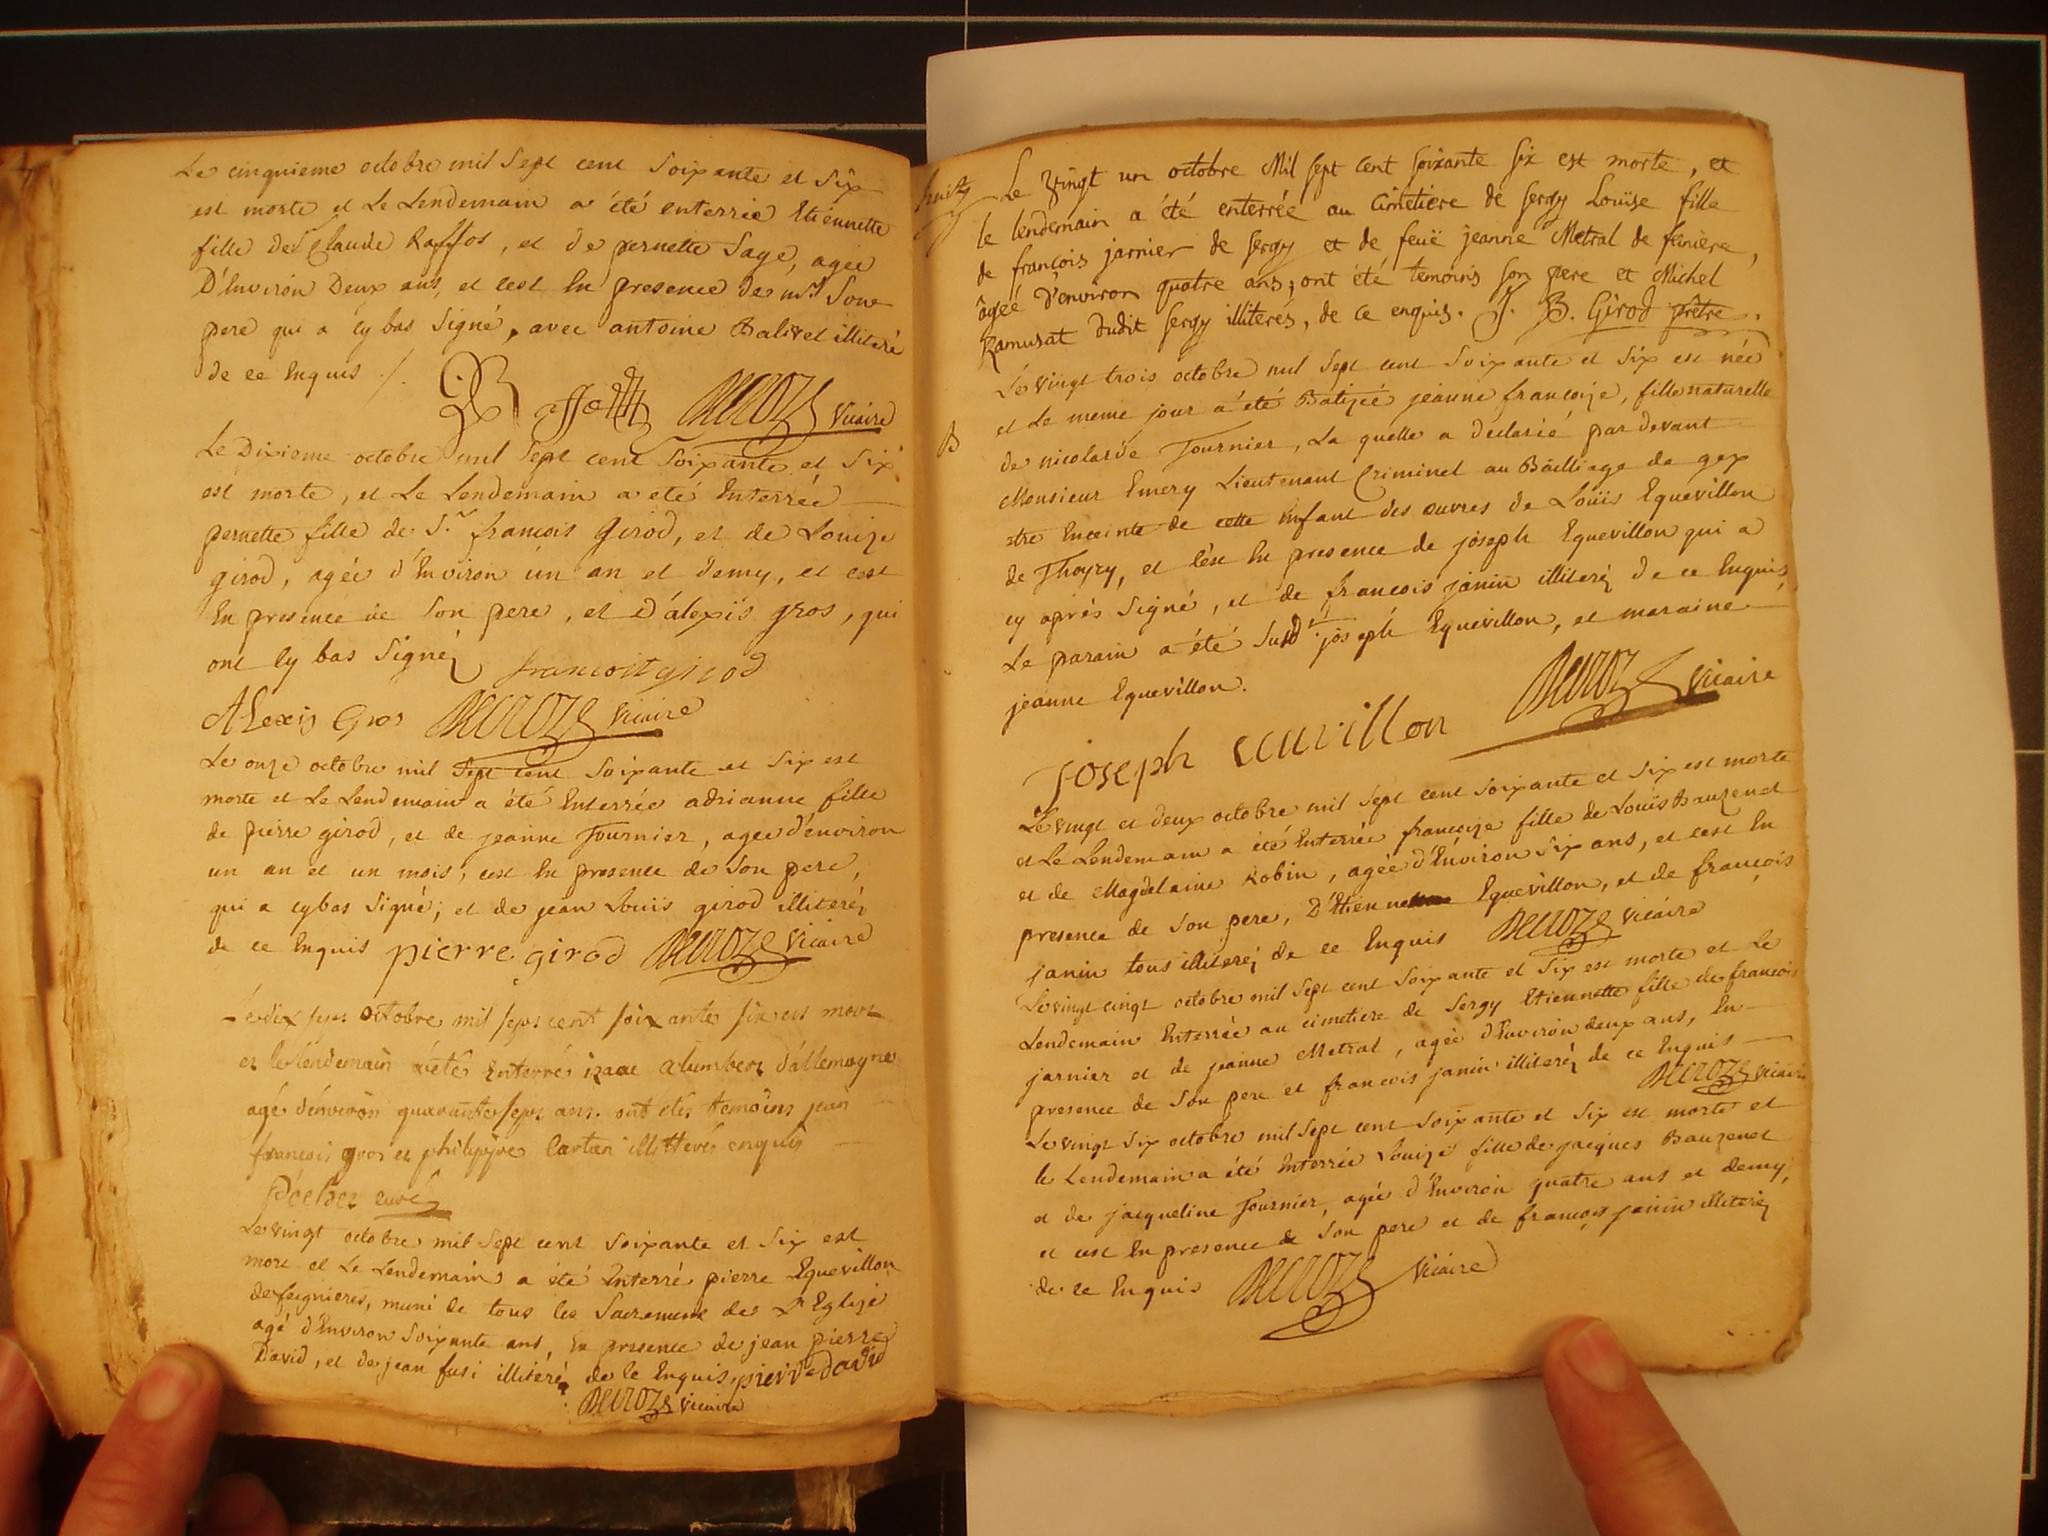 Le cinquieme octobre mil Sept cent Soixante et Six
est morte et Le Lendemain a été enterrée Etiennette
fille de Sr Claude Raffos, et de pernette Sage, agée
D'Environ Deux ans, et cest En presence de mr Son
pere qui a cy bas Signé, avec antoine Balivet illiteré
de ce Enquis ./.
Decroze Vicaire
Le Dixieme octobre mil Sept cent Soixante et Six
est morte, et Le Lendemain a eté Enterrée
pernette fille de Sr françois Girod, et de Louize
girod, agée d'Environ un an et demy, et cest
En presence de Son pere, et d'alexis gros, qui
ont Cy bas Signéz francoit girod
ALexis Gros Decroze Vicaire
Le onze octobre mil Sept cent Soixante et Six est
morte et Le Lendemain a été Enterrée adrianne fille
de pierre girod, et de jeanne Fournier, agee d'environ
un an et un mois, cest En presence de Son pere,
qui a cy bas Signé; et de jean Louis girod illiteréz
de ce Enquis pierre girod Decroze Vicaire
Le dix sept octobre mil sept cent soixante six est mort
et le lendemain a eté Enterré izaac d'allemagne
agé denviron quarante sept ans. ont etés temoins jean
francois gros et philippe Cartan illitterés enquis
curé
Le vingt octobre mil Sept cent Soixante et Six est
mort et Le Lendemain a été Enterré pierre Equevillon
de feignieres, muni de tous les Sacrements de L'Eglize
agé d'Environ Soixante ans, En presence de jean pierre
David, et de jean fusi illiteré de le Enquis, pierre david
Decroze Vicaire
Le Vingt un octobre Mil sept cent soixante six est morte, et
le lendemain a été enterrée au cimetiere de sergy Louïse fille
de françois jarnier de sergy et de feuë jeanne Metral de feniere,
âgée d'environ quatre ans; ont été temoins son pere et Michel
Ramusat dudit sergy illiterés, de ce enquis. J. B. Girod prêtre.
Le vingt trois octobre mil Sept cent Soixante et Six est née
et Le meme jour a été Batizée jeanne françoize, fille naturelle
B
de nicolarde Fournier, La quelle a declarée par devant
Monsieur Emery Lieutenant Criminel au Bailliage de gex
etre Enceinte de cette Enfant des œuvres de Loüis Equevillon
de Thoyry, et c'est En presence de joseph Equevillon qui a
cy aprés Signé, et de françois janin illiteréz de ce Enquis,
Le parain a été Susdt joseph Equevillon, et maraine
jeanne Equevillon. Decroze Vicaire
Joseph
Le vingt et deux octobre mil Sept cent Soixante et Six est morte
et Le Lendemain a été Enterrée françoize fille de Louis Bauzenet
et de Magdelaine Robin, agée d'Environ Six ans, et cest En
presence de Son pere, D'Etienne Equevillon, et de françois
janin tous illiteréz de ce Enquis Decroze Vicaire
Le vingt cinqt octobre mil Sept cent Soixante et Six est morte et Le
Lendemain Enterrée au cimetiere de Sergy Etiennette fille de françois
jarnier et de jeanne Metral, agée d'Environ deux ans, En
presence de Son pere et francois janin illiteréz de ce Enquis
Decroze Vicaire
Le vingt Six octobre mil Sept cent Soixante et Six est morte et
le Lendemain a été Enterrée Louize fille de jacques Bauzenet
et de jacqueline Fournier, agée d'Environ quatre ans et demy,
et cest En presence de Son pere et de françois janin illiteréz
de ce Enquis Decroze Vicaire